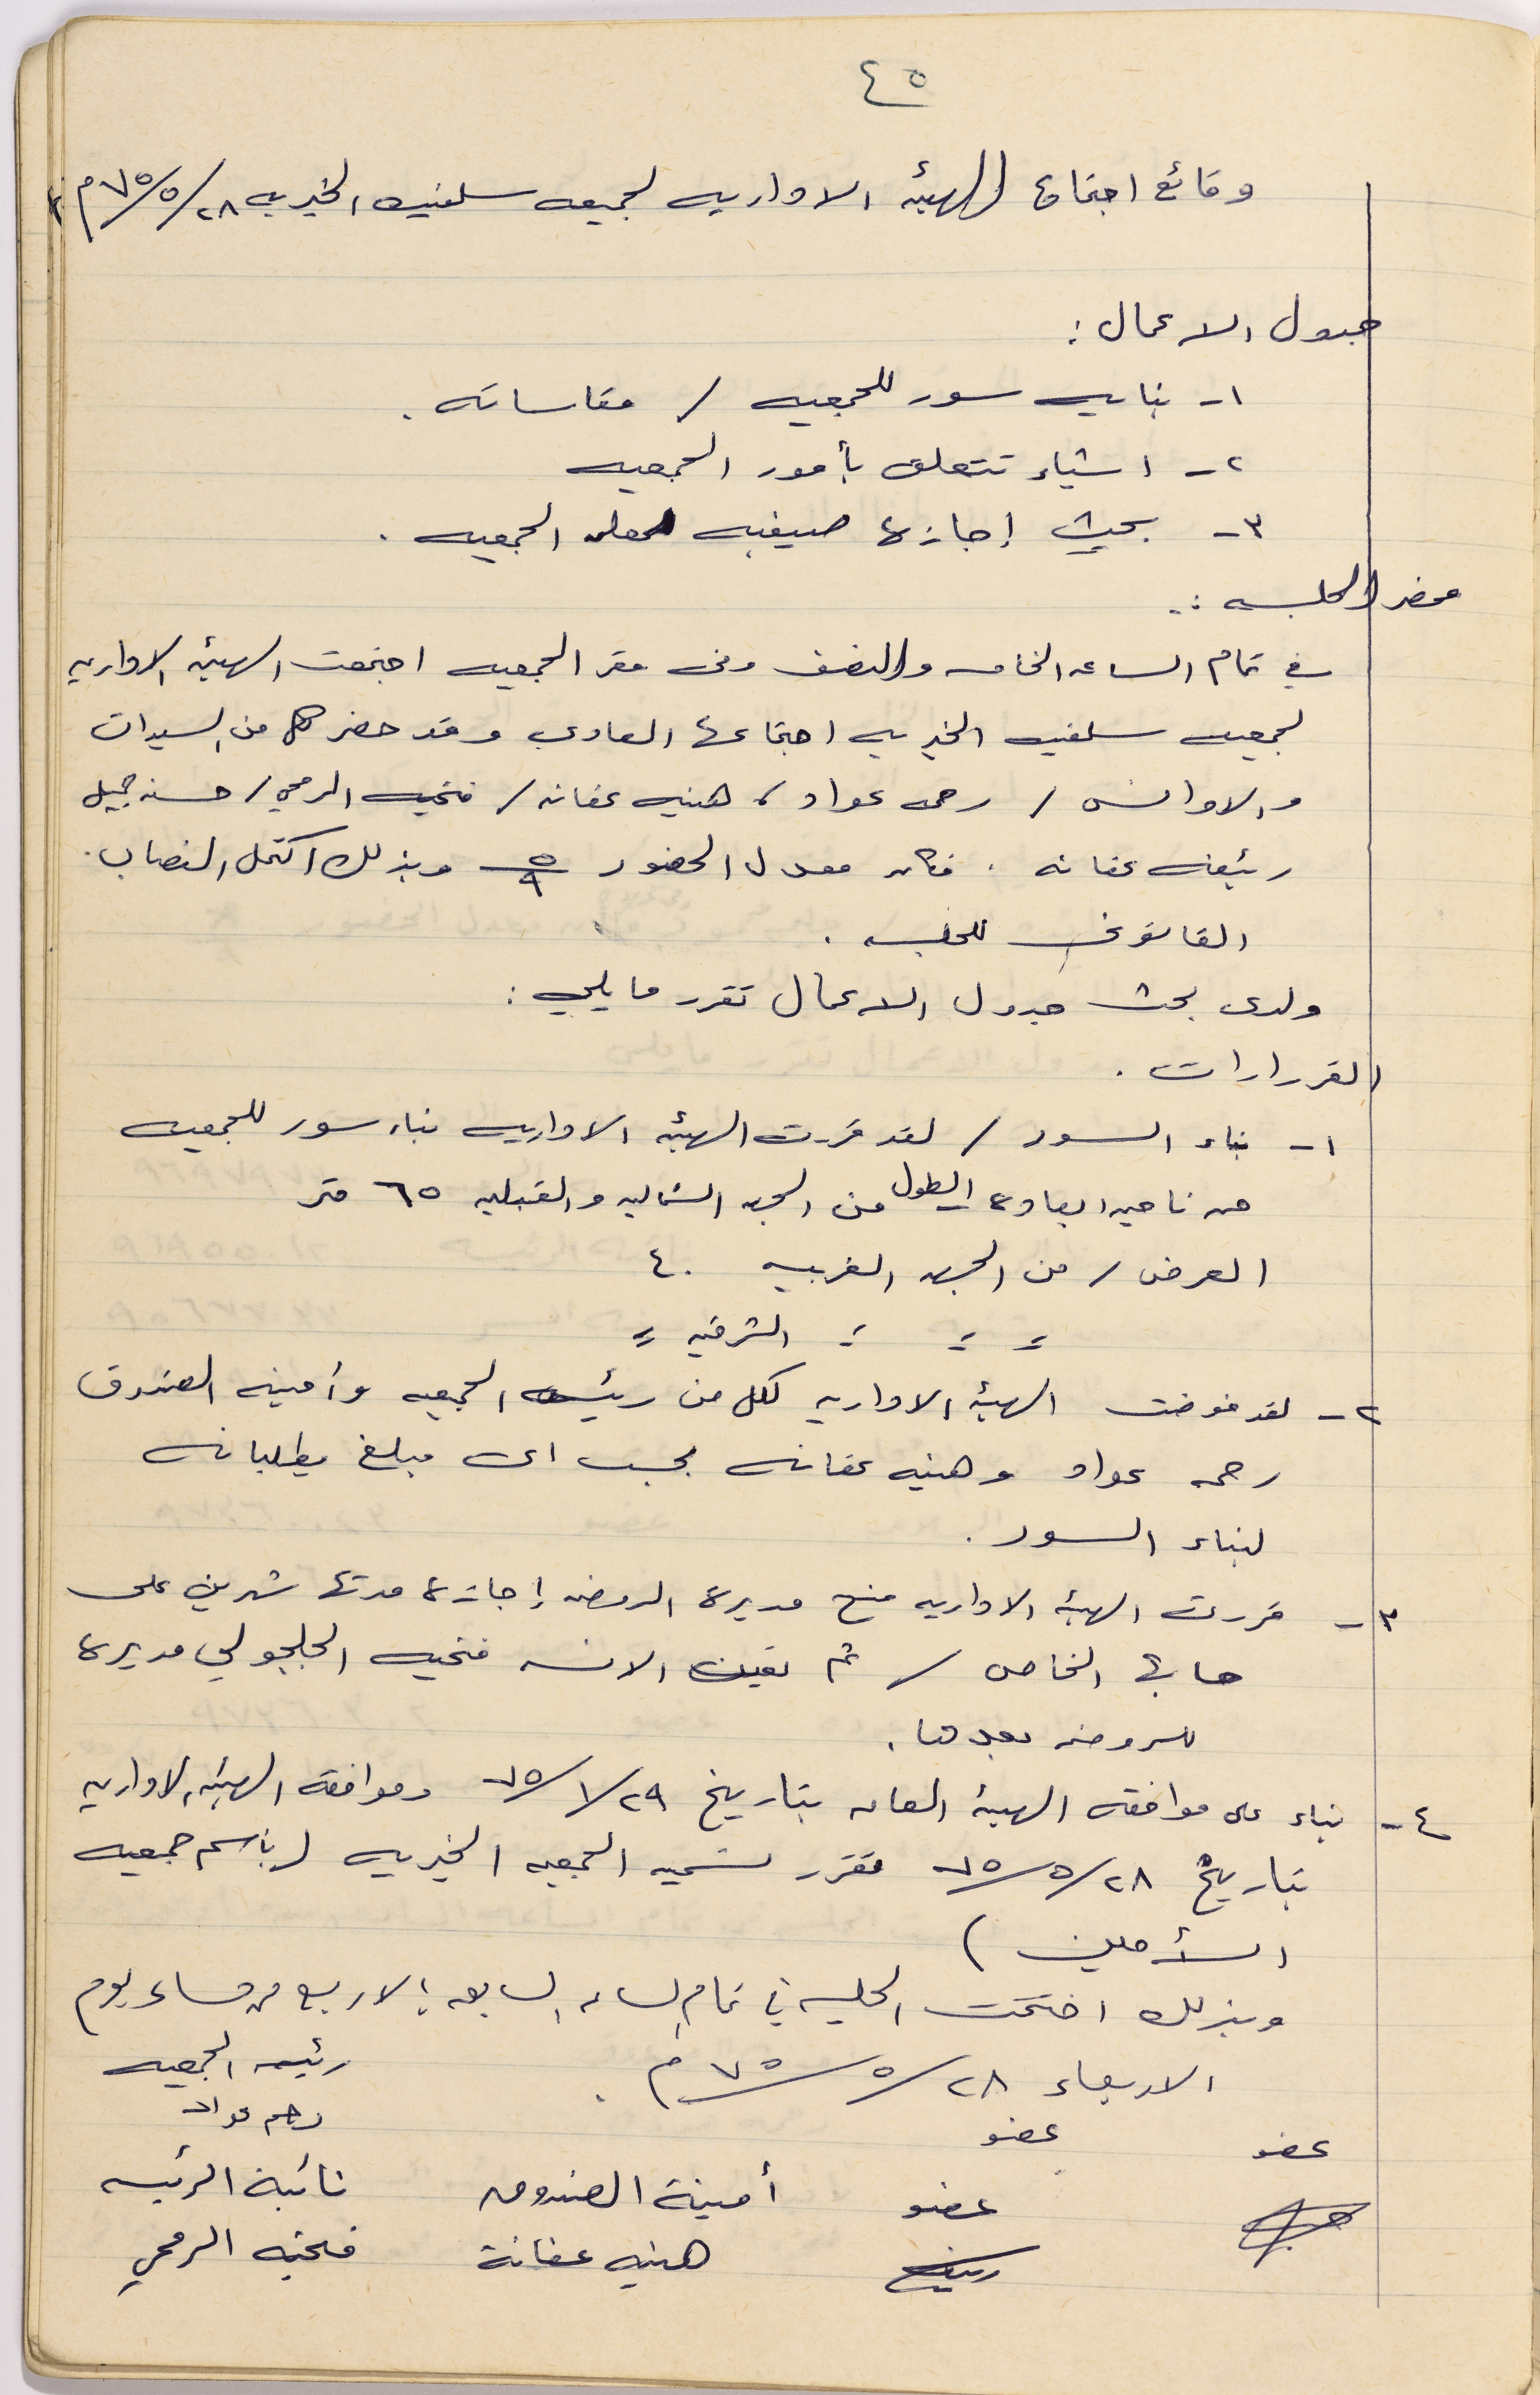 ٤٥
وقائع اجتماع الهيئه الاداريه لجمعيه سلفيت الخيريه ٢٨/٥/٧٥م
جدول الاعمال :
١- بنايه سور للجمعيه / مقاساته .
٢- اشياء تتعلق بأمور الجمعيه
٣- بحث إجازة صيفيه الجمعيه .
محضر الجلسه :
في تمام الساعه الخامسه والنصف وفى مقر الجمعيه اجتمعت الهيئه الاداريه
لجمعيه سلفيت الخيريه اجتماعها العادي وقد حضر كل من السيدات
والاوانس / رحمه عواد / هنيه عفانه / فتحيه الرمحي / حسنه جميل
رئيفه عفانه . فكان معدل الحضور ٥/٩ وبذلك اكتمل النصاب .
القانوني للجلسه .
ولدى بحث جدول الاعمال تقرر ما يلي :
القرارات .
١- بناء السور / لقد قررت الهيئه الاداريه بناء سور للجمعيه
من ناحيه ابعاده الطول من الجهه الشماليه والقبليه ٦٥ متر
العرض / من الجهه الغربيه ٤٠
= = = الشرقيه =
٢- لقد فوضت الهيئه الاداريه لكل من رئيسه الجمعيه وأمينه الصندوق
رحمه عواد وهنيه عفانه بحسب اى مبلغ يطلبانه
لبناء السور .
٣- قررت الهيئه الاداريه منح مديرة الروضه إجازة مدتها شهرين على
حسابها الخاص / ثم تعين الانسه فتحيه الجلجولي مديرة
للروضه بعدها .
٤- بناء على موافقة الهيئه العامه بتاريخ ٢٩/١/٧٥ وموافقة الهيئه الاداريه
بتاريخ ٢٨/٥/٧٥ تقرر تسميه الجمعيه الخيريه (باسم جمعيه
)
وبذلك اختتمت الجلسه في تمام الساعه السابعه إلا ربع من مساء يوم
الاربعاء ٢٨/٥/٧٥م .
رئيسه الجمعيه
رحمه عواد
عضو
عضو
عضو
رئيفه
أمينة الصندوق
هنيه عفانة
نائبة الرئيسه
فتحيه الرمحي